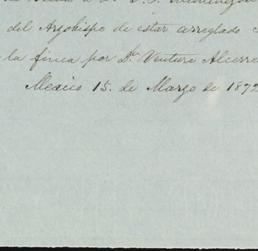 del Arzobispo de estar arreglado
la finca por Dn Ventura Alcerre
Mexico 15. de Marzo de 1872